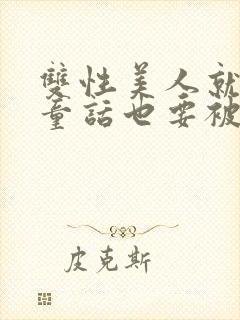 雙性美人就
童話也要被
皮克斯